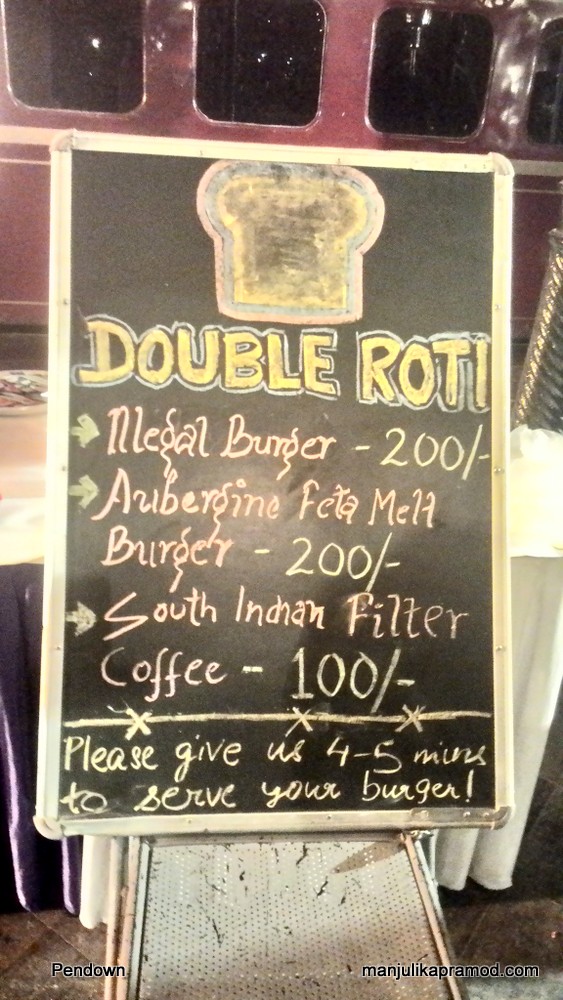 DOUBLE ROTI
Illegal Burger - 200/-
Aubergine Feta Melt
Burger - 200/-
South Indian Filter
Coffee - 100/-
Please give us 4-5 mins
to serve your burger!
Pendown
manjulikapramod.com